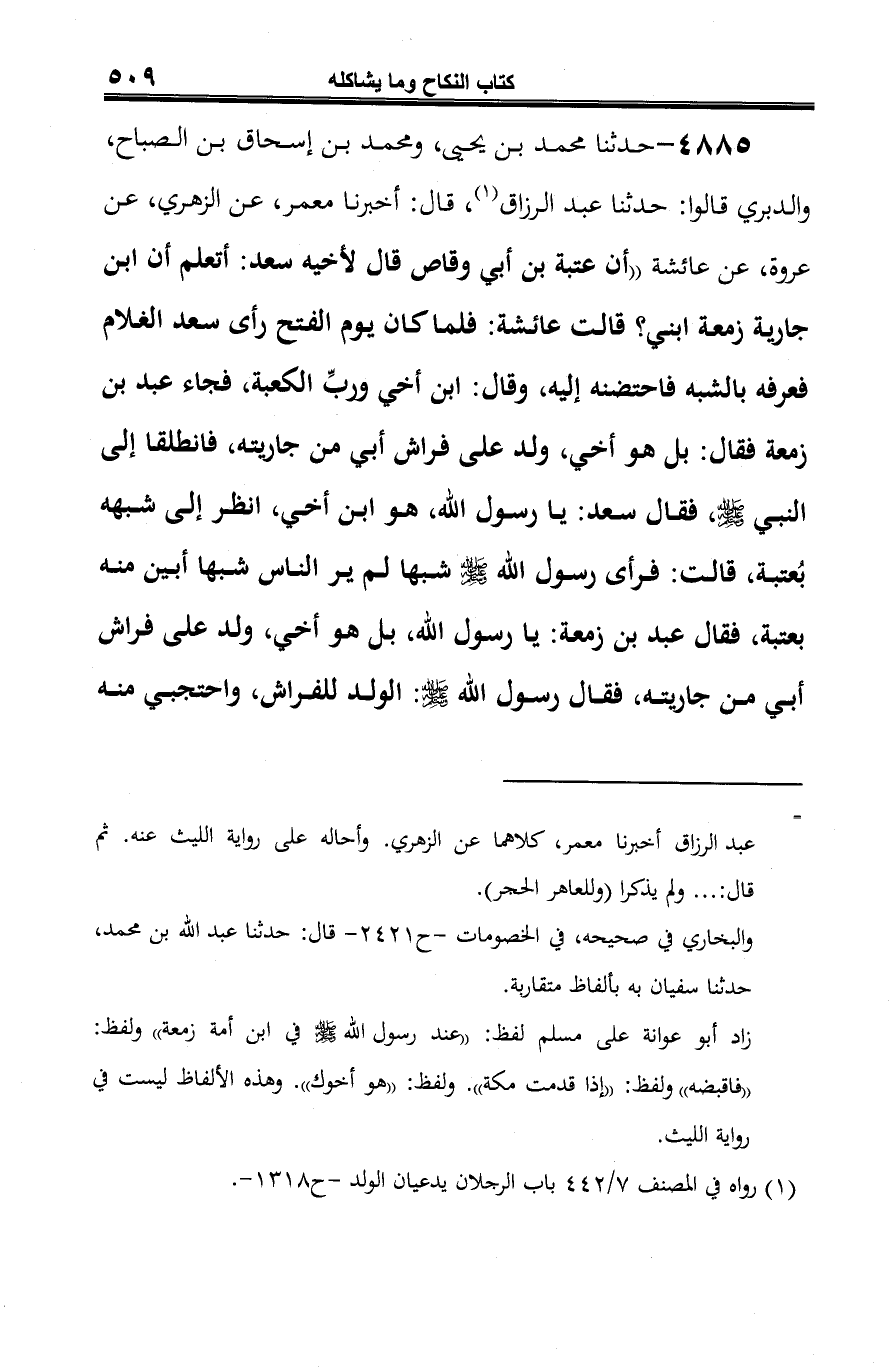 كتاب النكاح وما يشاكله ٥٠٩
٤٨٨٥-حدثنا محمد بن يحيى، ومحمد بن إسحاق بن الصباح،
والدبري قالوا: حدثنا عبد الرزاق(١)، قال: أخبرنا معمر، عن الزهري، عن
عروة، عن عائشة ((أن عتبة بن أبي وقاص قال لأخيه سعد: أتعلم أن ابن
جارية زمعة ابني؟ قالت عائشة: فلما كان يوم الفتح رأى سعد الغلام
فعرفه بالشبه فاحتضنه إليه، وقال: ابن أخي وربِّ الكعبة، فجاء عبد بن
زمعة فقال: بل هو أخي، ولد على فراش أبي من جاريته، فانطلقا إلى
النبي ﷺ، فقال سعد: يا رسول الله، هو ابن أخي، انظر إلى شبهه
بُعتبة، قالت: فرأى رسول الله ﷺ شبها لم ير الناس شبها أبين منه
بعتبة، فقال عبد بن زمعة: يا رسول الله، بل هو أخي، ولد على فراش
أبي من جاريته، فقال رسول الله ﷺ: الولد للفراش، واحتجبي منه
=
عبد الرزاق أخبرنا معمر، كلاهما عن الزهري. وأحاله على رواية الليث عنه. ثم
قال:... ولم يذكرا (وللعاهر الحجر).
والبخاري في صحيحه، في الخصومات -ح٢٤٢١- قال: حدثنا عبد الله بن محمد،
حدثنا سفيان به بألفاظ متقاربة.
زاد أبو عوانة على مسلم لفظ: ((عند رسول الله ﷺ في ابن أمة زمعة)) ولفظ:
((فاقبضه)) ولفظ: ((إذا قدمت مكة)). ولفظ: ((هو أخوك)). وهذه الألفاظ ليست في
رواية الليث.
(١) رواه في المصنف ٤٤٢/٧ باب الرجلان يدعيان الولد -ح١٣١٨-.